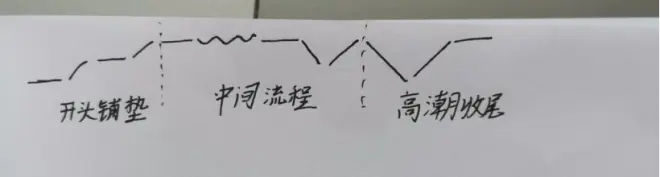 开头铺垫 中间流程 高潮收尾